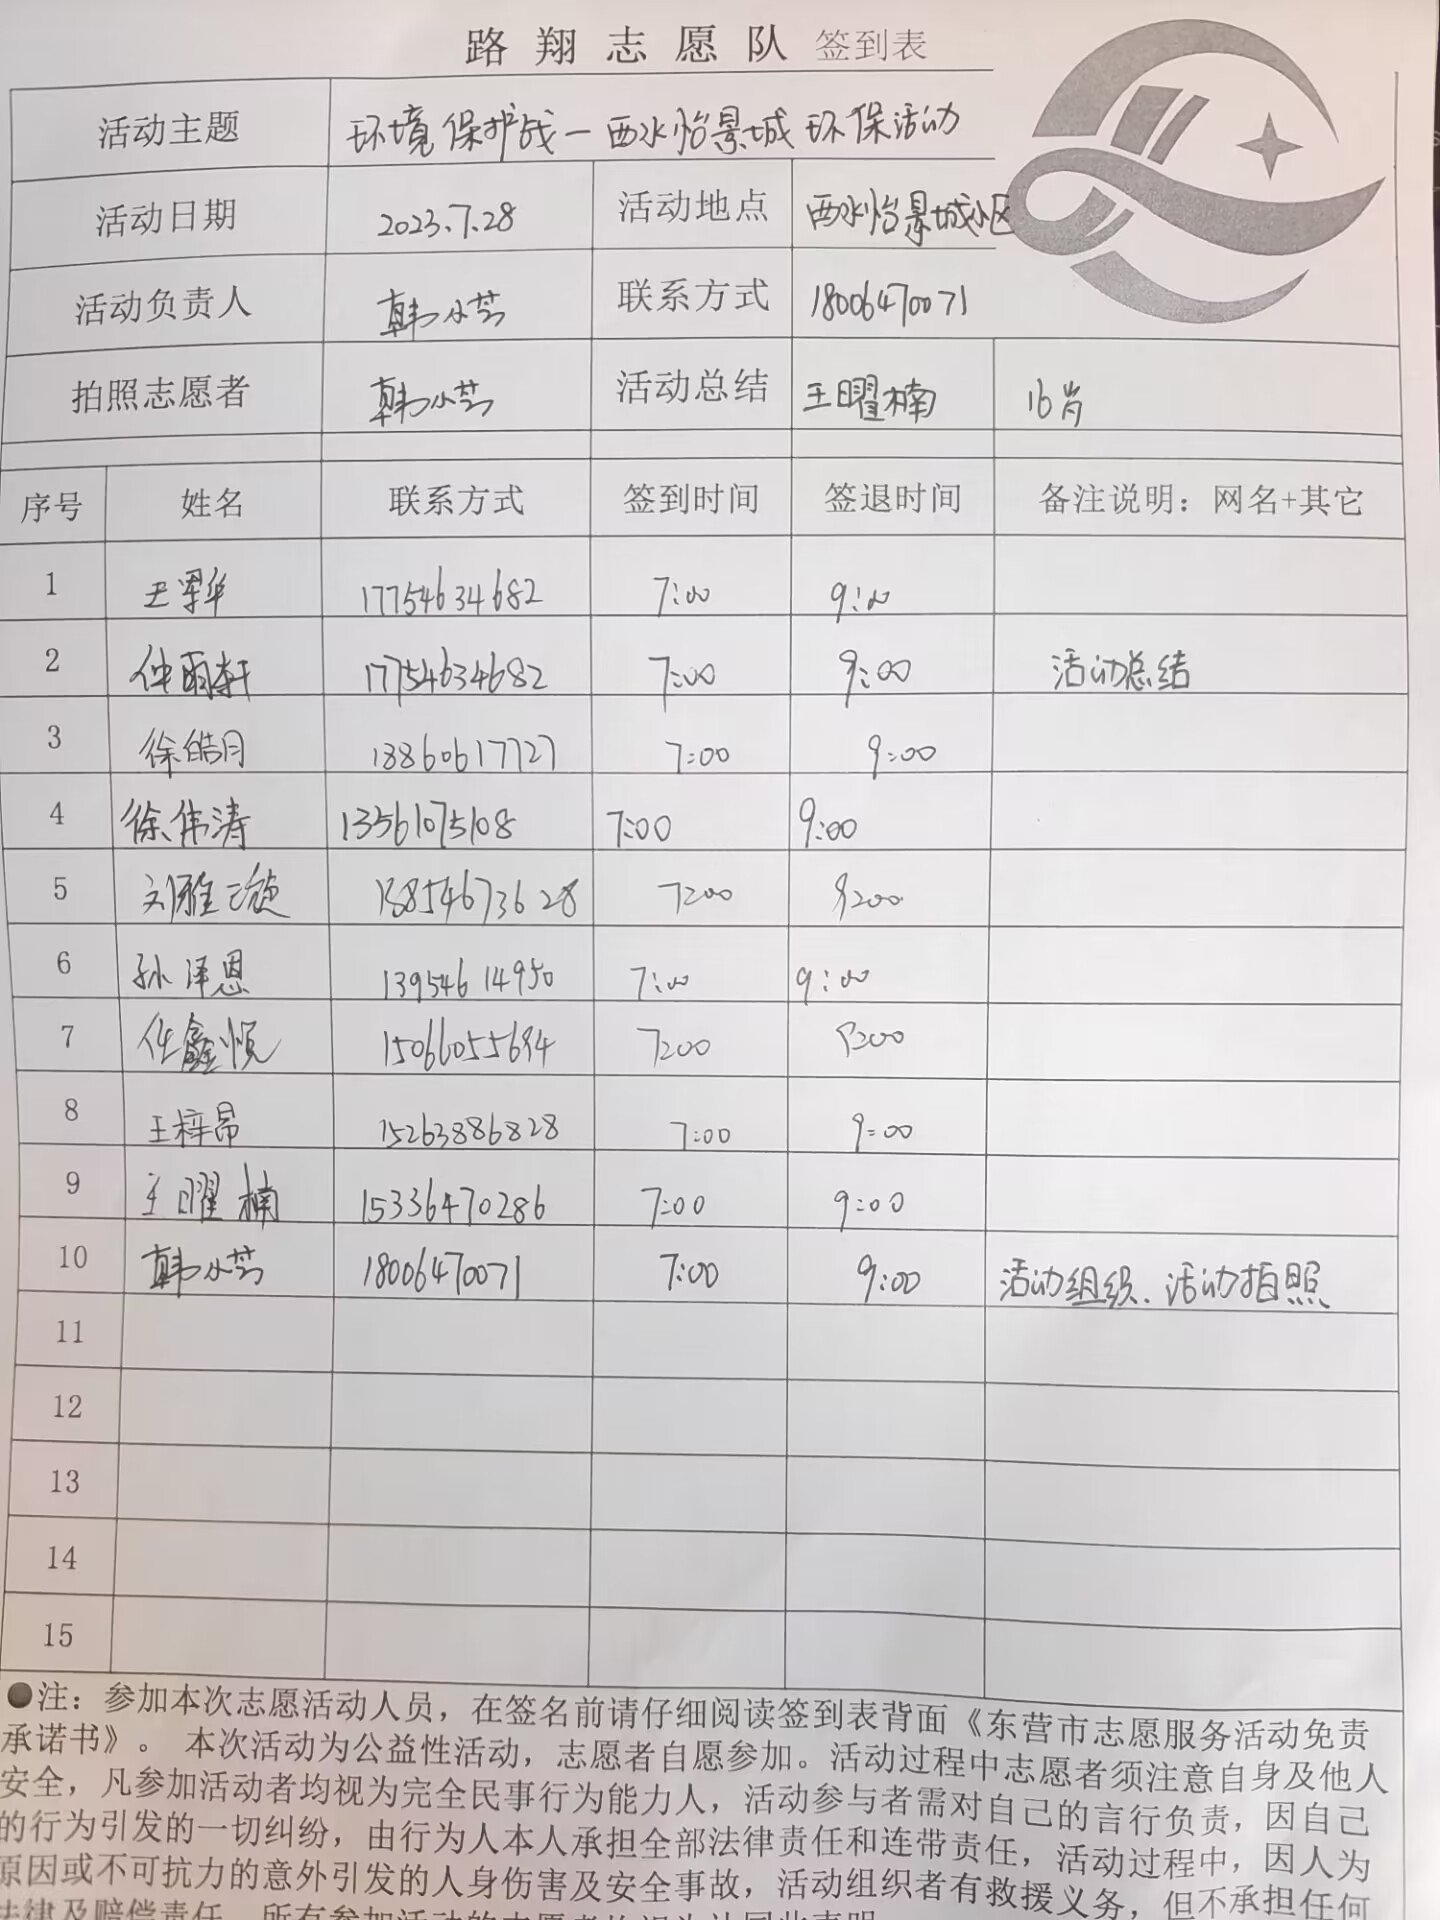 路翔志愿队 签到表
活动主题 环境保护战一西水怡景城环保活动
活动日期 2023.7.28 活动地点 西水怡景城小区
活动负责人 韩小芸 联系方式 18006470071
拍照志愿者 韩小芸 活动总结 王曜楠 16岁
序号 姓名 联系方式 签到时间 签退时间 备注说明：网名+其它
1 17754634682 7:00 9:00
2 仲雨轩 17754634682 7:00 9:00 活动总结
3 徐皓月 18860617727 7:00 9:00
4 徐伟涛 13561075108 7:00 9:00
5 刘雅 18854673628 7:00 9:00
6 孙泽恩 13954614950 7:00 9:00
7 任鑫悦 15066055694 7:00 9:00
8 王梓昂 15263886828 7:00 9:00
9 王曜楠 15336470286 7:00 9:00
10 韩小芸 18006470071 7:00 9:00 活动组织、活动拍照
11
12
13
14
15
●注：参加本次志愿活动人员，在签名前请仔细阅读签到表背面《东营市志愿服务活动免责
承诺书》。 本次活动为公益性活动，志愿者自愿参加。活动过程中志愿者须注意自身及他人
安全，凡参加活动者均视为完全民事行为能力人，活动参与者需对自己的言行负责，因自己
的行为引发的一切纠纷，由行为人本人承担全部法律责任和连带责任，活动过程中，因人为
原因或不可抗力的意外引发的人身伤害及安全事故，活动组织者有救援义务，但不承担任何
法律及赔偿责任。所有参加活动的志愿者均视为认同此声明